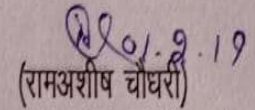 01.9.19
(रामअशीष चौधरी)